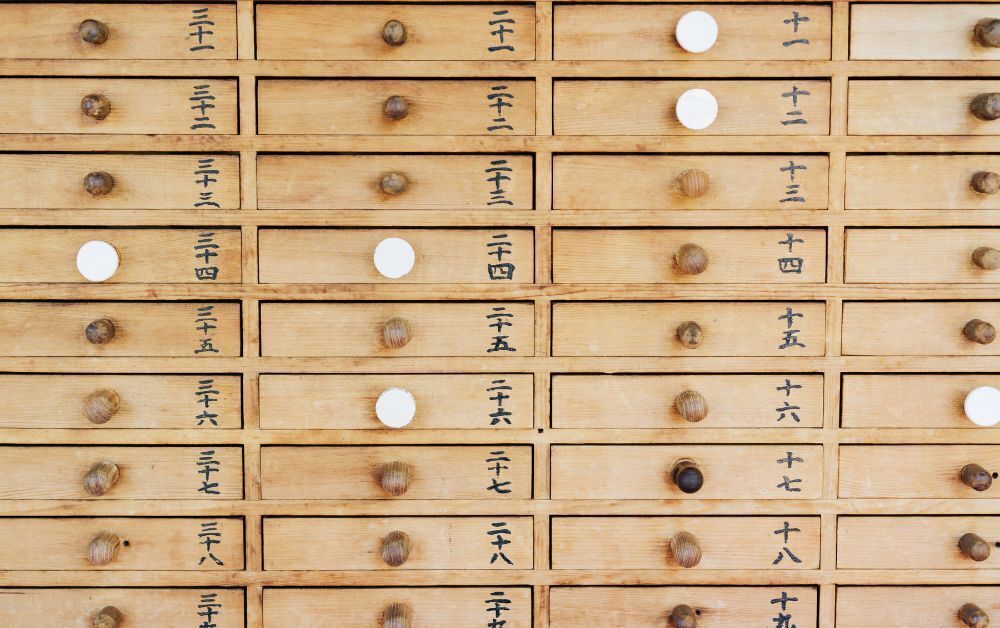 十一
十二
十三
十四
十五
十六
十七
十八
十九
二十一
二十二
二十三
二十四
二十五
二十六
二十七
二十八
二十九
三十一
三十二
三十三
三十四
三十五
三十六
三十七
三十八
三十九